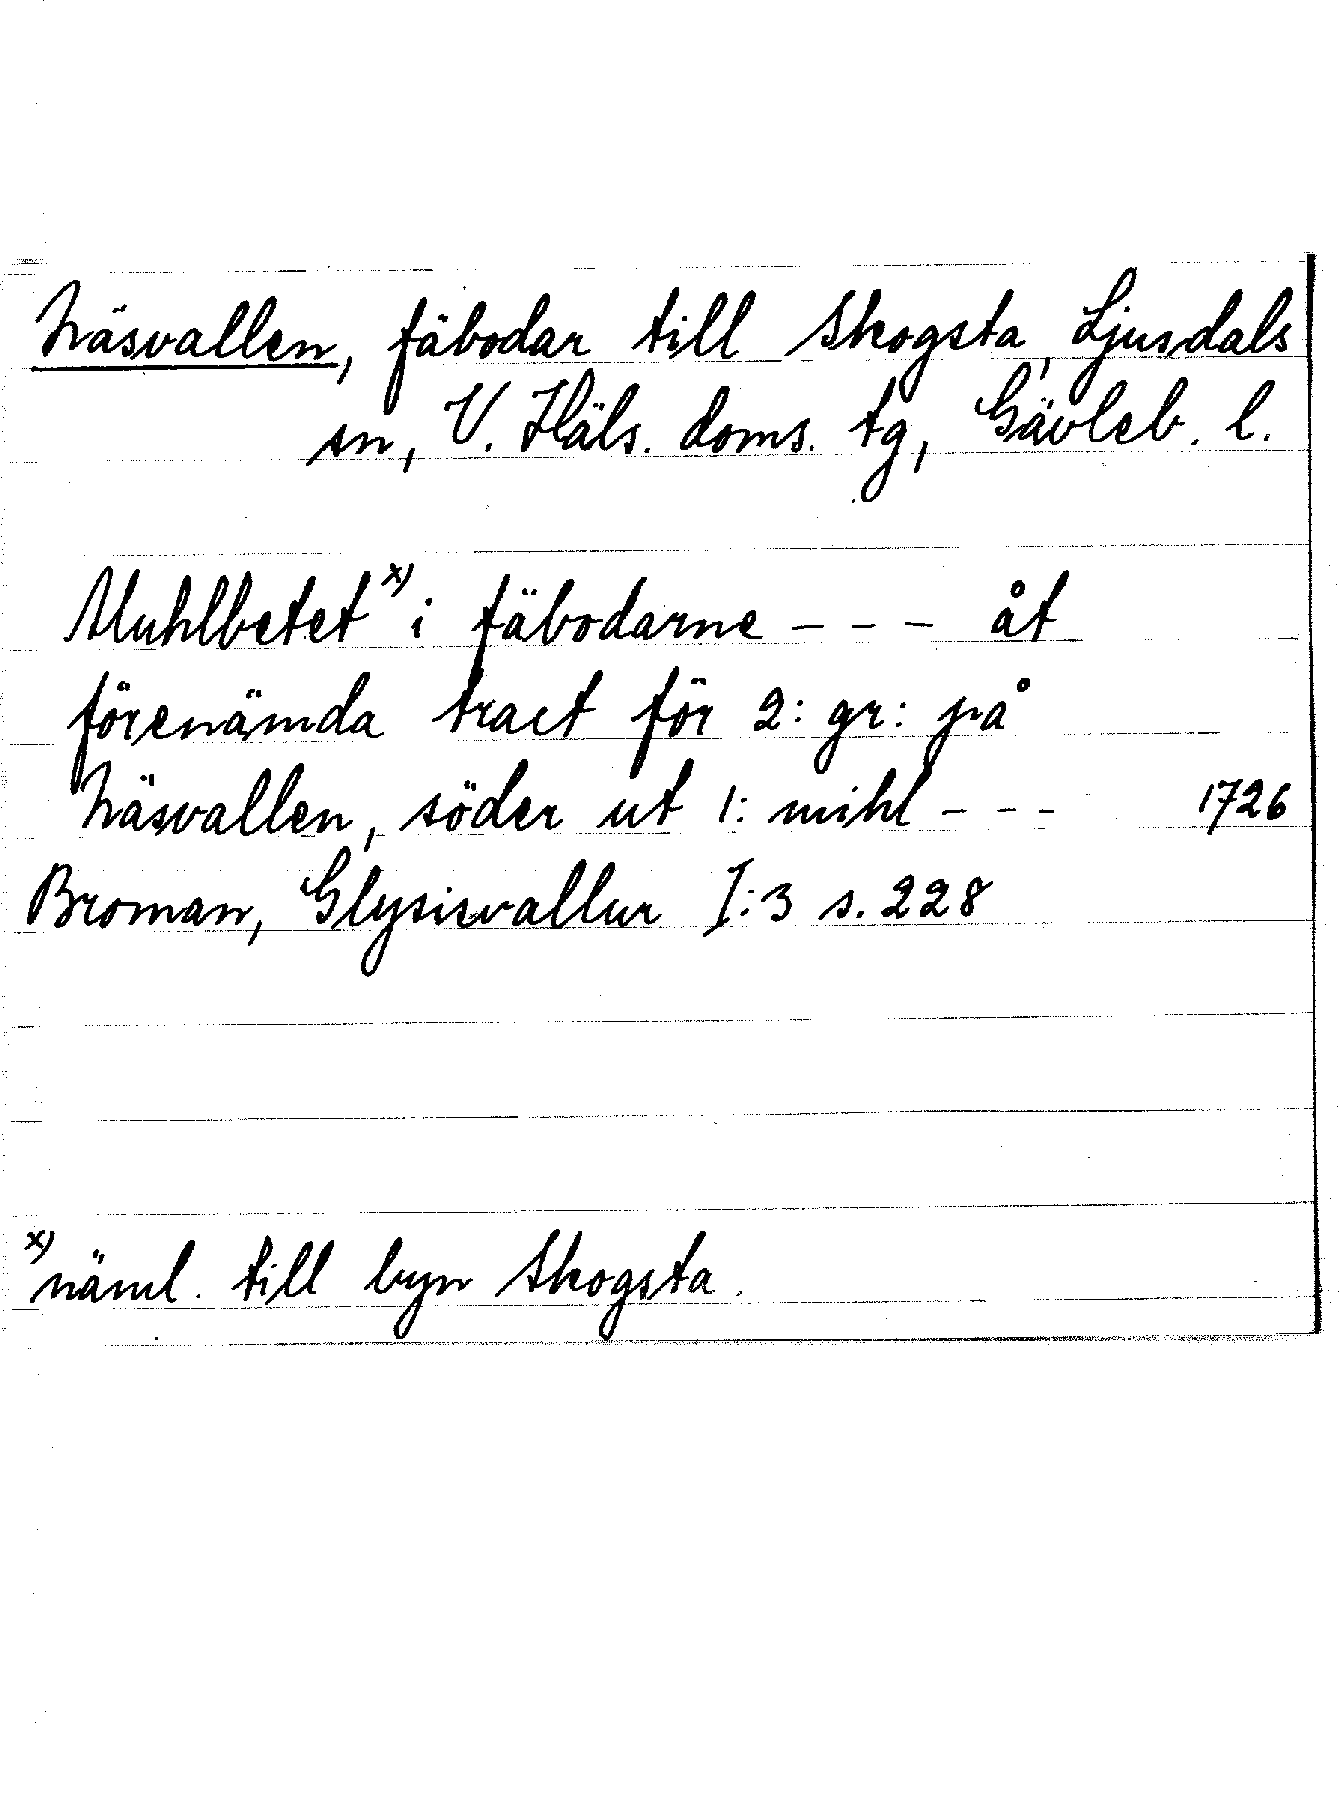 Näsvallen, fäbodar till Skogsta, Ljusdals
sn, V. Häls. doms. tg, Gävleb. l.
Muhlbetet x) i fäbodarne - - - åt
förenämda tract för 2: gr: på
Näsvallen, söder ut 1: mihl - - - 1726
Broman, Glysisvallur I:3 s. 228
x) näml. till byn Skogsta.